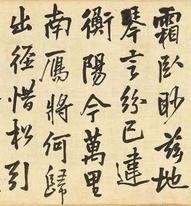 霜臥眇茲地
琴言紛已違
衡陽今萬里
南雁將何歸
出徑惜松引